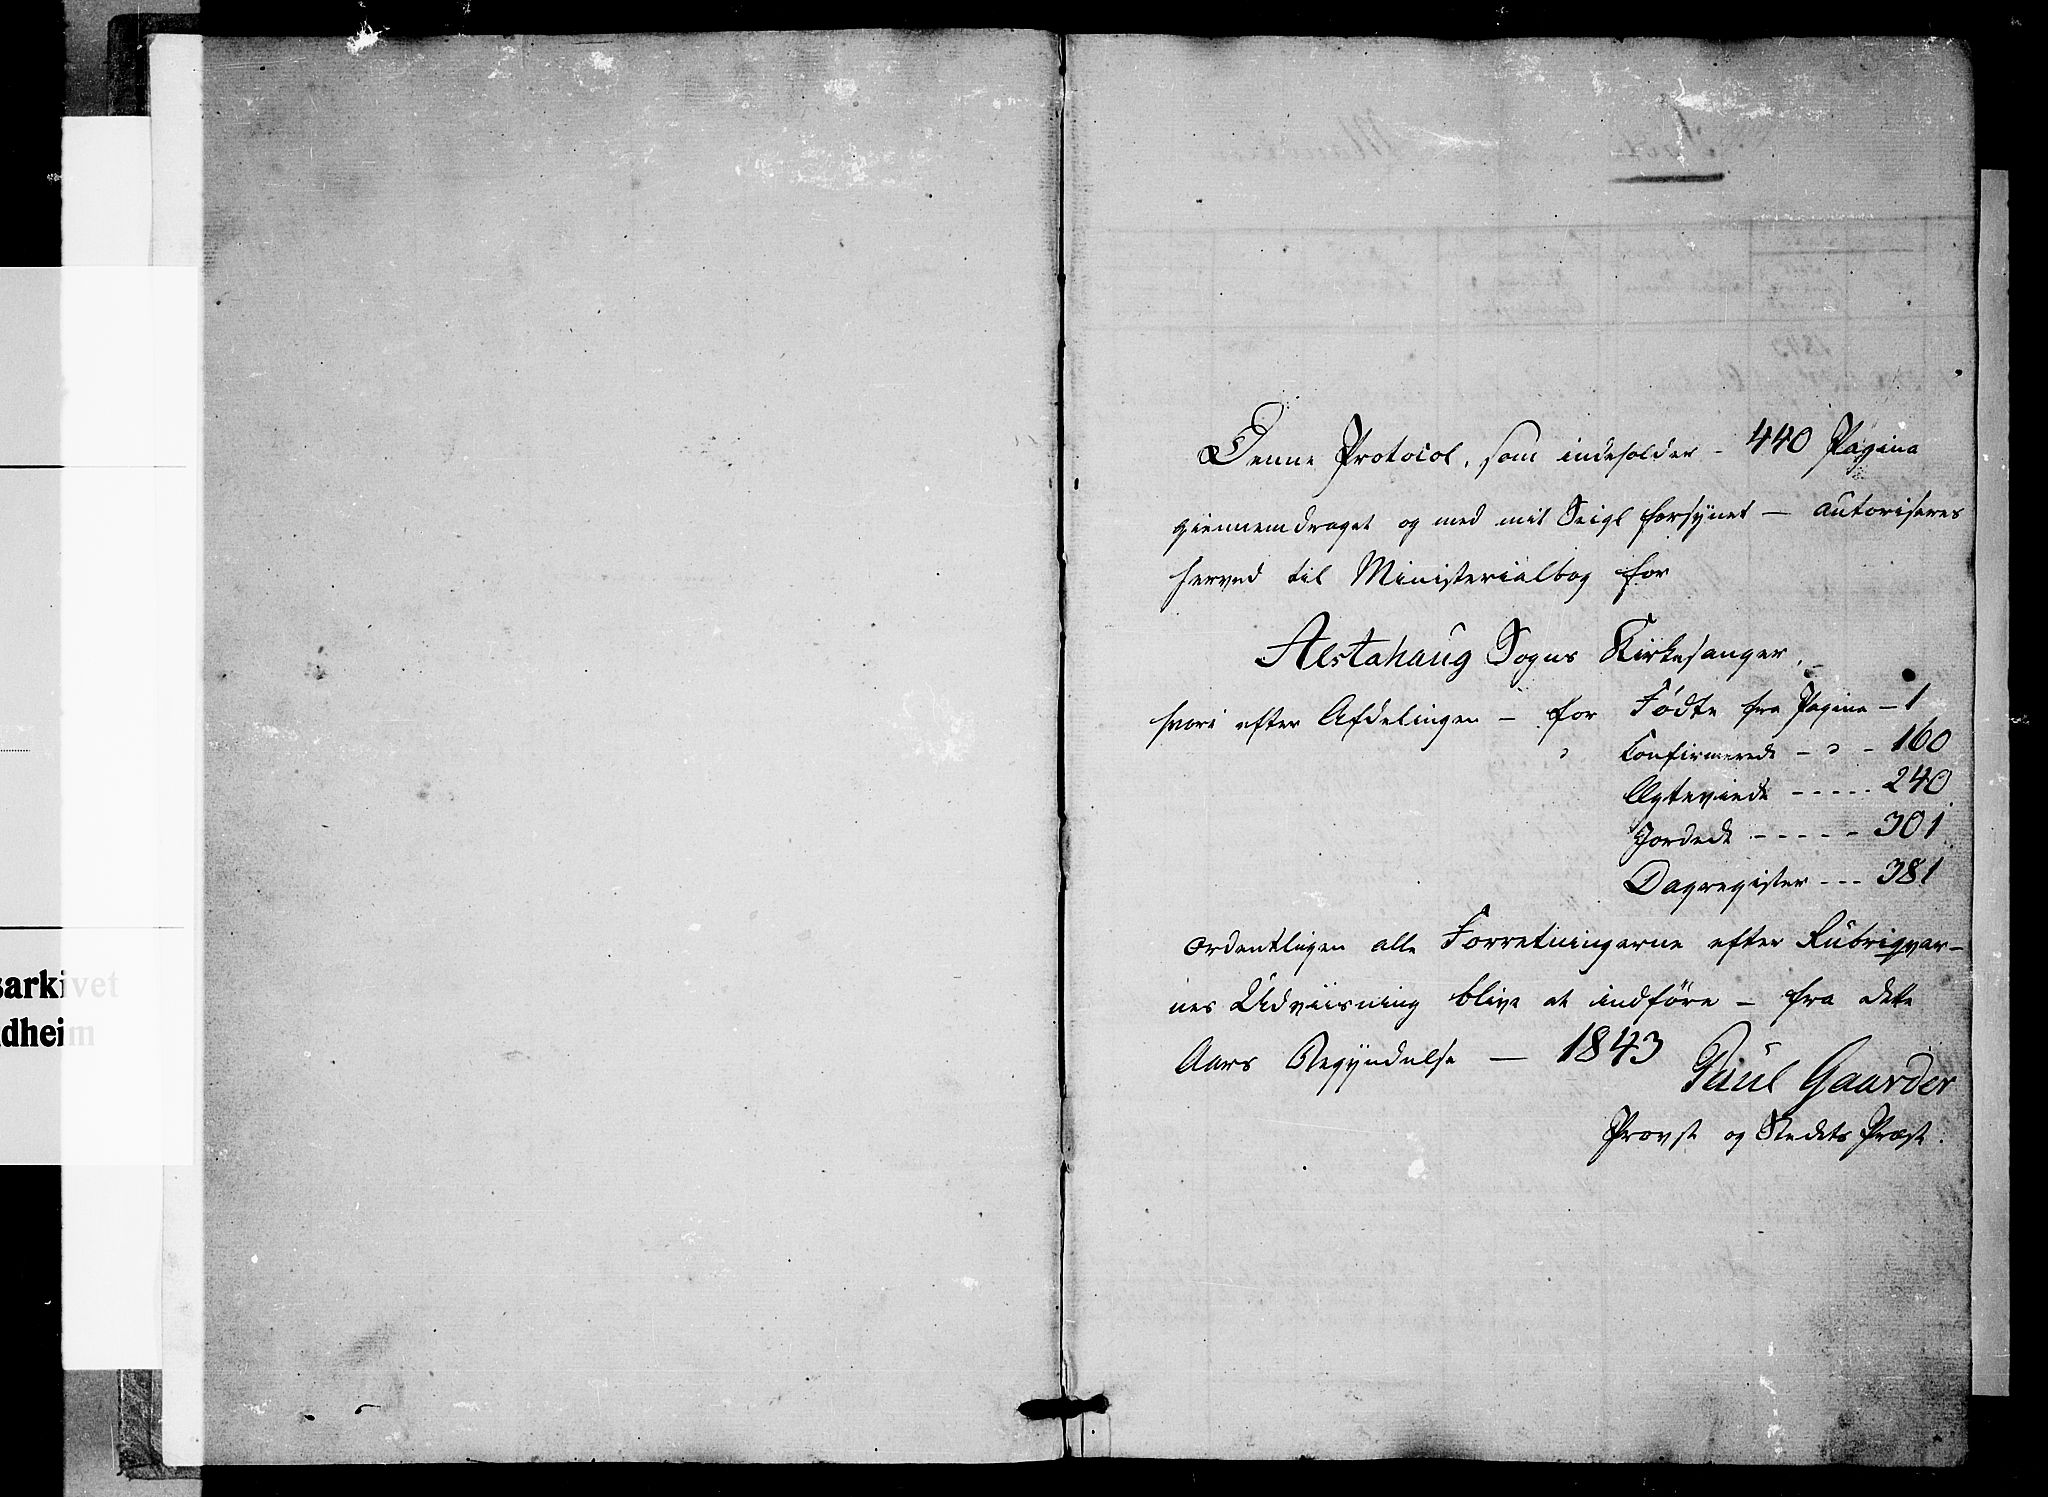 sarkivet
dheim
Denne Protocol, som indeholder - 440 Pagina
giennemdraget og med mit Seigl forsynet — autoriseres
herved til Ministerialbog for
Alstahaug Sogns Kirkesanger,
hvori efter Afdelingen - for Födte fra Pagina - 1
" Confirmerede - " - 160
Ægteviede - - - - - 240
Jordede - - - - - 301
Dagregister - - - 381
ordentligen alle Forretningerne efter Rubriqver-
nes Udviisning blive at indföre - fra dette
Aars Begyndelse — 1843
Paul Gaarder
Provst og Stedets Præst.